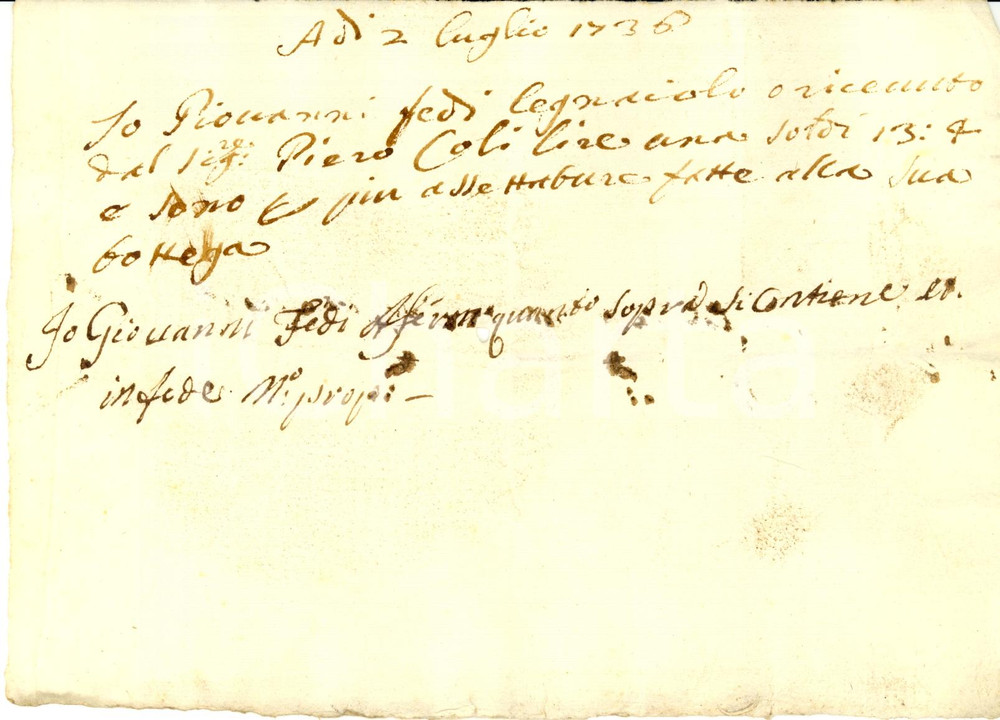 Adi 2 luglio 1736
Io Giouanni fedi legnaiolo o riceuuto
dal Sig:re Piero Coli lire una soldi 13: 4
e sono p più assettature fatte alla sua
bottega
Io Giouanni Fedi Affermo quanto sopra si Contiene et.
in fede M.o prop: